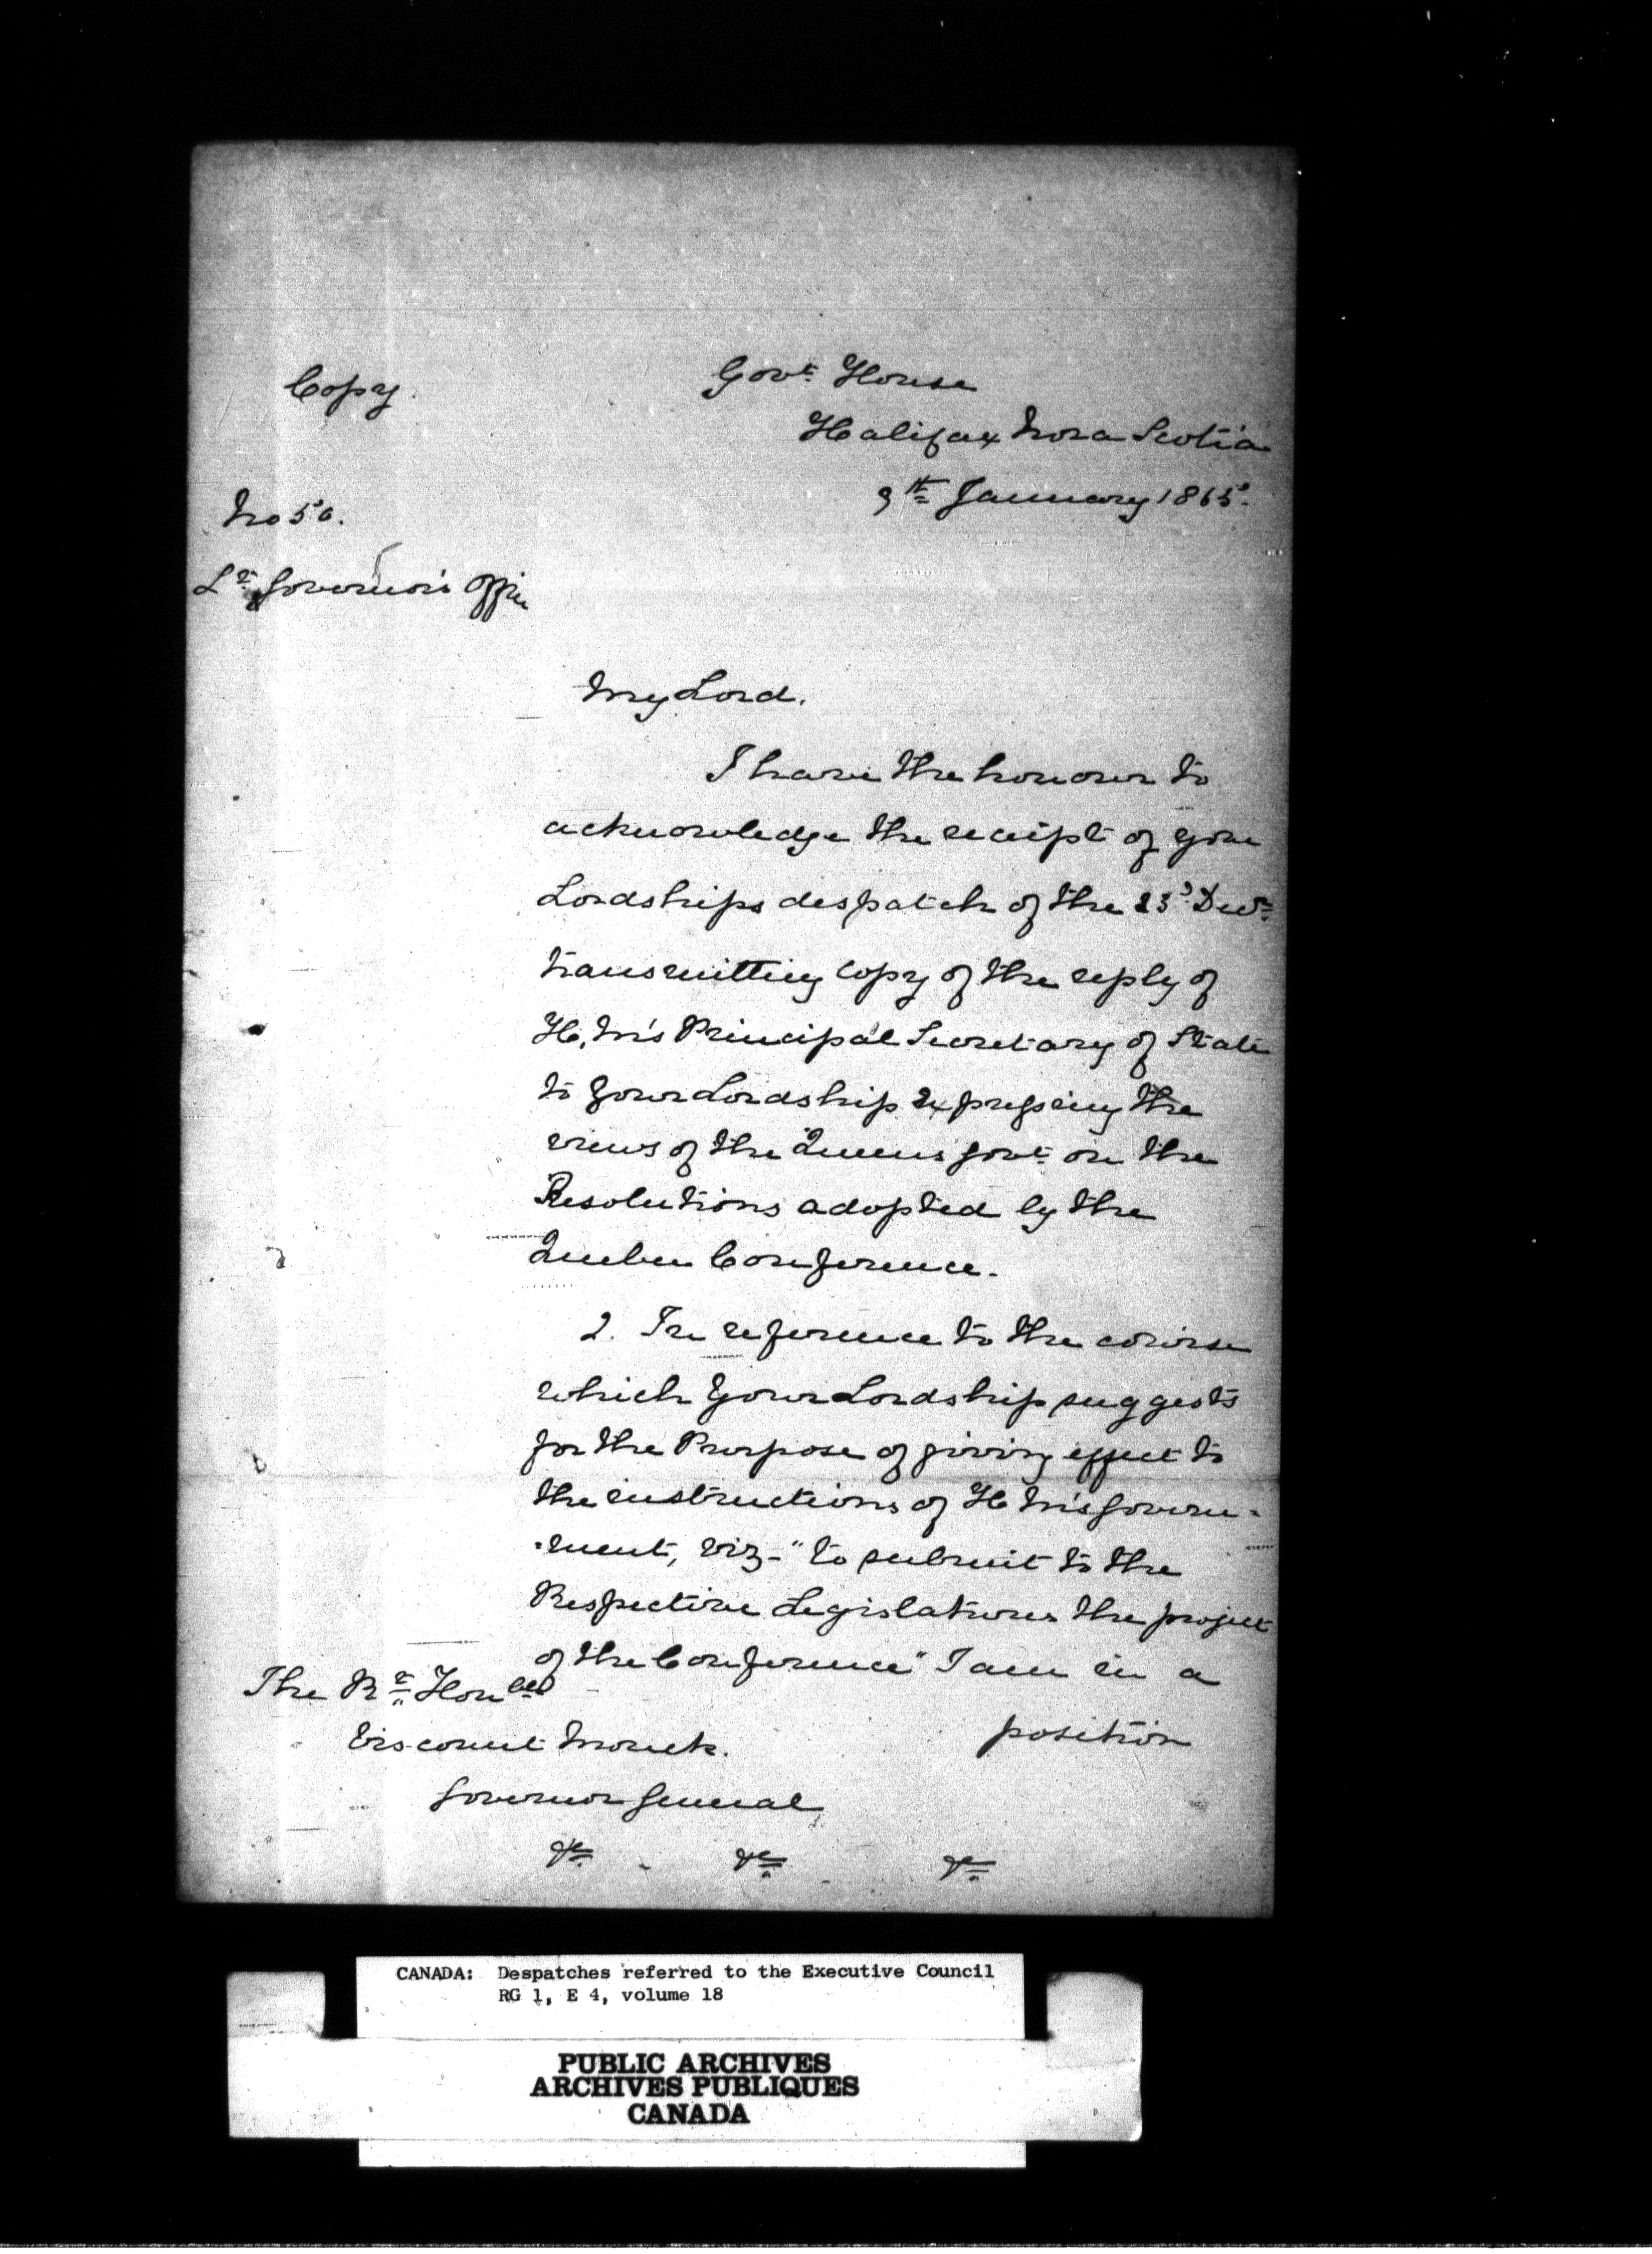 Copy.
Govt. House
Halifax Nova Scotia
9th January 1865.
No 50.
Lt. Governor's Office
My Lord.
I have the honour to
acknowledge the receipt of your
Lordships despatch of the 23d Decr.
transmitting copy of the reply of
H. M's Principal Secretary of State
to your Lordship expressing the
views of the Queens Govt. on the
Resolutions adopted by the
Quebec Conference.
2. In reference to the course
which your Lordship suggests
for the Purpose of giving effect to
the instructions of H M's Govern-
-ment, viz - "to submit to the
Respective Legislatures the project
of the Conference" I am in a
position
The Rt. Honble
Viscount Monck.
Governor General
&c. - &c. - &c.
CANADA: Despatches referred to the Executive Council
RG 1, E 4, volume 18
PUBLIC ARCHIVES
ARCHIVES PUBLIQUES
CANADA